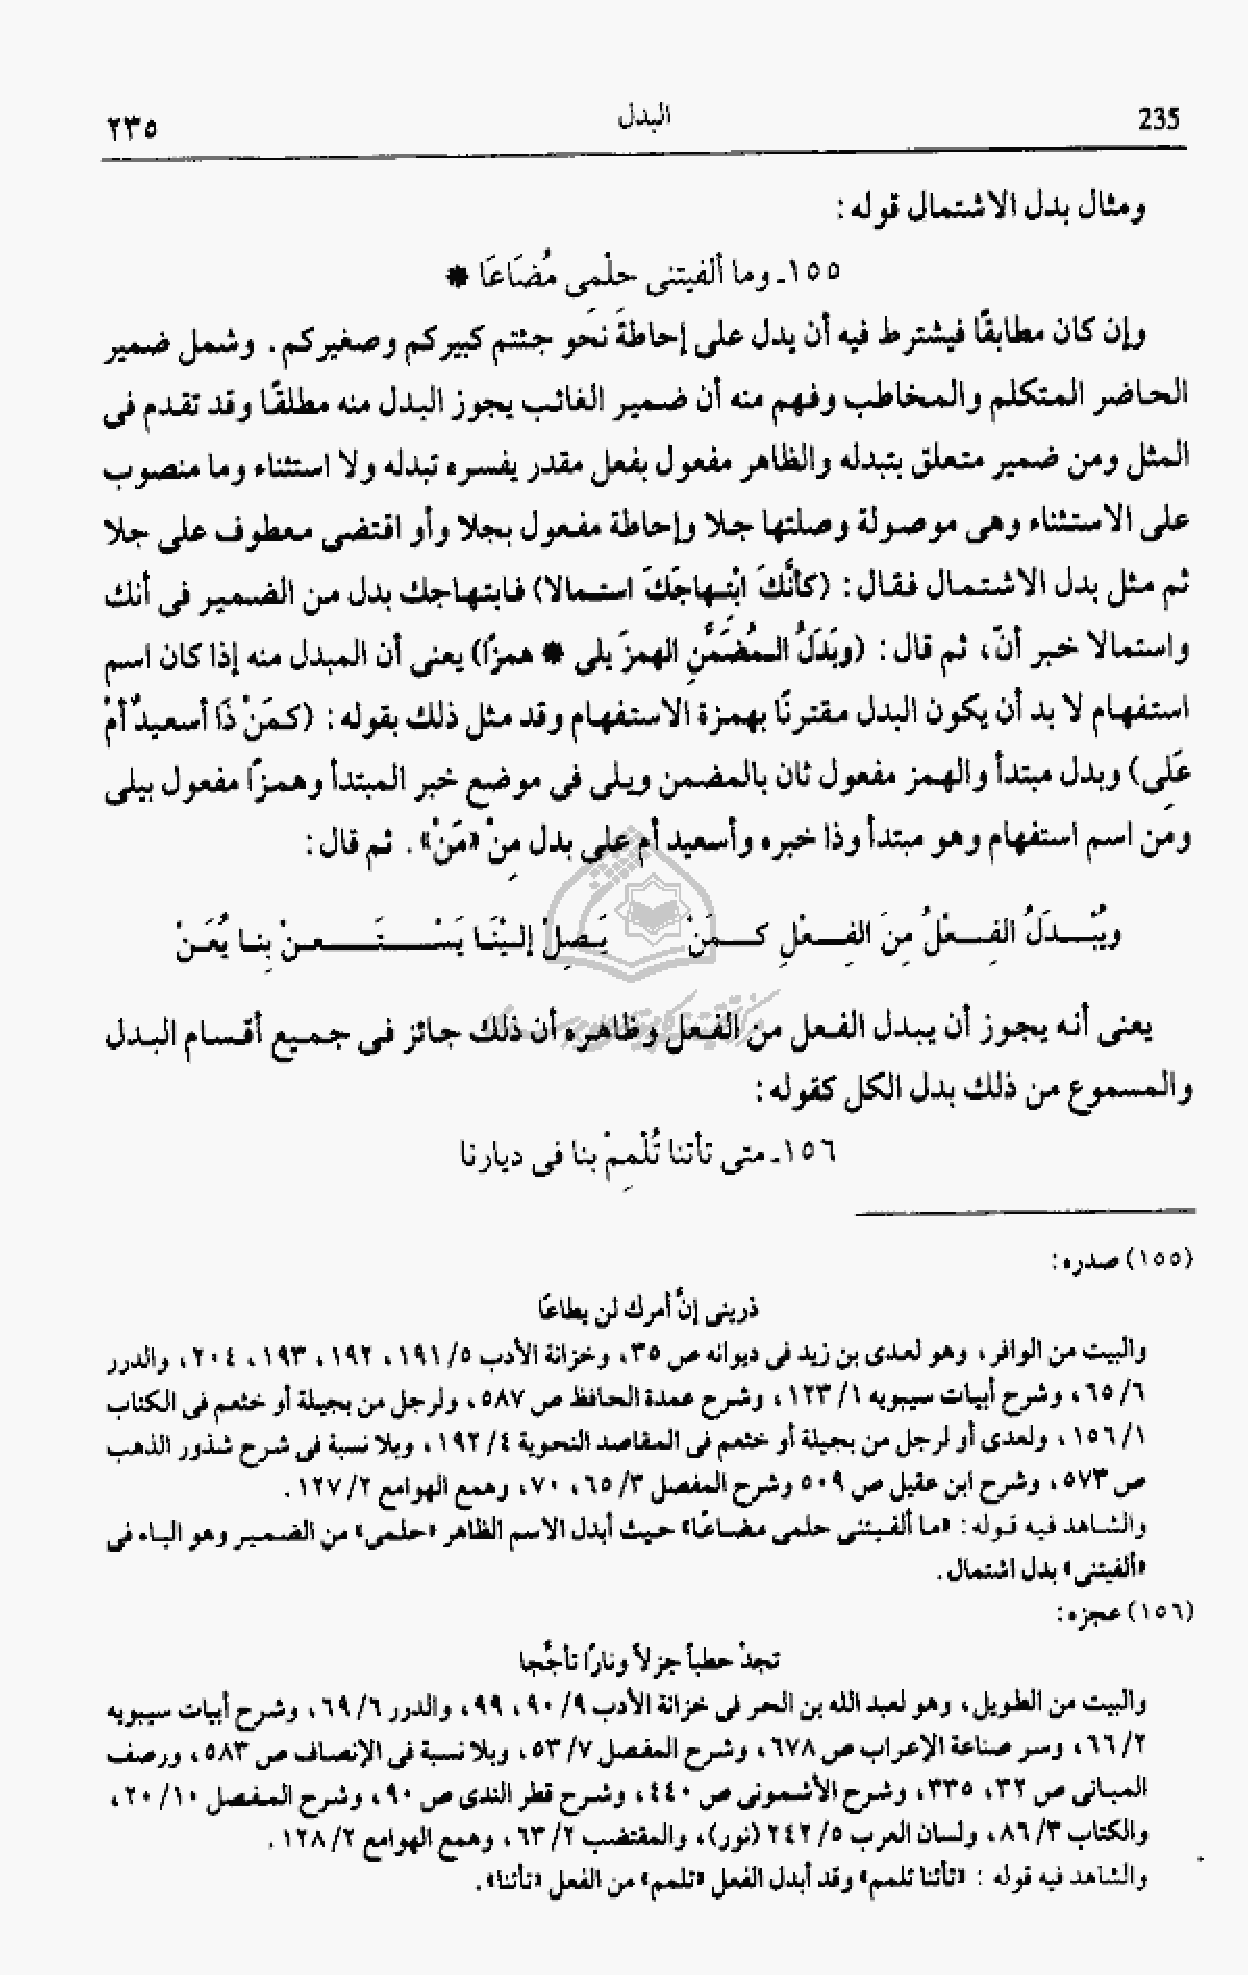 235 البدل ٢٣٥
ومثال بدل الاشتمال قوله :
١٥٥ـ وما ألفيتنى حلْمِى مُضَاعَا *
وإن كان مطابقًا فيشترط فيه أن يدل على إحاطةَ نحو جئتم كبيركم وصغيركم . وشمل ضمير
الحاضر المتكلم والمخاطب وفهم منه أن ضمير الغائب يجوز البدل منه مطلقًا وقد تقدم فى
المثل ومن ضمير متعلق بتبدله والظاهر مفعول بفعل مقدر يفسره تبدله ولا استثناء وما منصوب
على الاستثناء وهى موصولة وصلتها جلا وإحاطة مفعول بجلا وأو اقتضى معطوف على جلا
ثم مثل بدل الاشتمال فقال : (كأنَّكَ ابْتِهاجَكَ استمالا) فابتهاجك بدل من الضمير فى أنك
واستمالا خبر أنّ ، ثم قال : (وبَدَلُ المُضَمَّنِ الهمزَ يلى * همزًا) يعنى أن المبدل منه إذا كان اسم
استفهام لا بد أن يكون البدل مقترنًا بهمزة الاستفهام وقد مثل ذلك بقوله : (كمَنْ ذَا أسعيدٌ أمْ
عَلِى) وبدل مبتدأ والهمز مفعول ثان بالمضمن ويلى فى موضع خبر المبتدأ وهمزًا مفعول بيلى
ومَن اسم استفهام وهو مبتدأ وذا خبره وأسعيد أم على بدل مِنْ «مَنْ» . ثم قال :
ويُبْدَلُ الفِعْلُ مِنَ الفِعْلِ كمَنْ يَصِلْ إليْنَا يَسْتَعنْ بِنا يُعَنْ
يعنى أنه يجوز أن يبدل الفعل من الفعل وظاهره أن ذلك جائز فى جميع أقسام البدل
والمسموع من ذلك بدل الكل كقوله :
١٥٦ـ متى تأتنا تُلْمِمْ بنا فى ديارنا
(١٥٥) صدره :
ذرينى إنَّ أمرك لن يطاعَا
والبيت من الوافر ، وهو لعدى بن زيد فى ديوانه ص ٣٥ ، وخزانة الأدب ٥/ ١٩١ ، ١٩٢ ، ١٩٣ ، ٢٠٤ ، والدرر
٦/ ٦٥ ، وشرح أبيات سيبويه ١/ ١٢٣ ، وشرح عمدة الحافظ ص ٥٨٧ ، ولرجل من بجيلة أو خثعم فى الكتاب
١/ ١٥٦ ، ولعدى أو لرجل من بجيلة أو خثعم فى المقاصد النحوية ٤/ ١٩٢ ، وبلا نسبة فى شرح شذور الذهب
ص ٥٧٣ ، وشرح ابن عقيل ص ٥٠٩ وشرح المفصل ٣/ ٦٥ ، ٧٠ ، وهمع الهوامع ٢/ ١٢٧ .
والشاهد فيه قوله : «ما ألفيتنى حلمى مضاعًا» حيث أبدل الاسم الظاهر «حلمى» من الضمير وهو الياء فى
«ألفيتنى» بدل اشتمال .
(١٥٦) عجزه :
تجدْ حطباً جزلاً ونارًا تأجَّجا
والبيت من الطويل ، وهو لعبد الله بن الحر فى خزانة الأدب ٩/ ٩٠ ، ٩٩ ، والدرر ٦/ ٦٩ ، وشرح أبيات سيبويه
٢/ ٦٦ ، وسر صناعة الإعراب ص ٦٧٨ ، وشرح المفصل ٧/ ٥٣ ، وبلا نسبة فى الإنصاف ص ٥٨٣ ، ورصف
المبانى ص ٣٢ ، ٣٣٥ ، وشرح الأشمونى ص ٤٤٠ ، وشرح قطر الندى ص ٩٠ ، وشرح المفصل ١٠/ ٢٠ ،
والكتاب ٣/ ٨٦ ، ولسان العرب ٥/ ٢٤٢ (نور) ، والمقتضب ٢/ ٦٣ ، وهمع الهوامع ٢/ ١٢٨ .
والشاهد فيه قوله : «تأتنا تلمم» وقد أبدل الفعل «تلمم» من الفعل «تأتنا» .